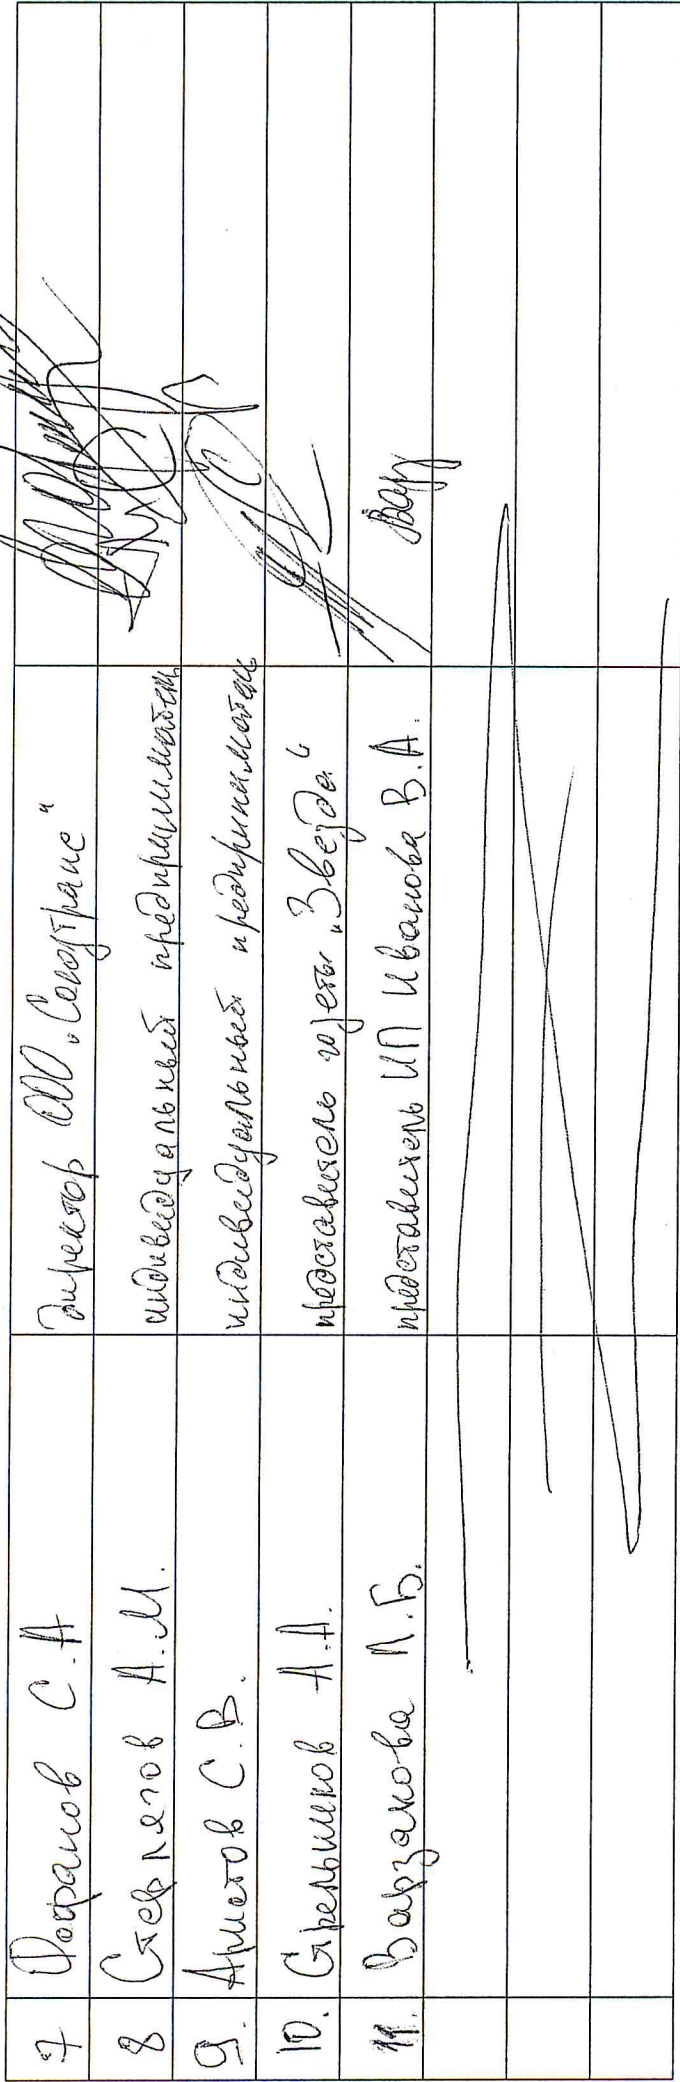 7 Фофанов С.А директор ООО „Союзтранс“
8 А.М. индивидуальный предприниматель
9. Арметов С.В. индивидуальный предприниматель
10. Стрельников А.А. представитель газеты „Звезда“
11. Варзакова Л.Б. представитель ИП Иванова В.А. Вар